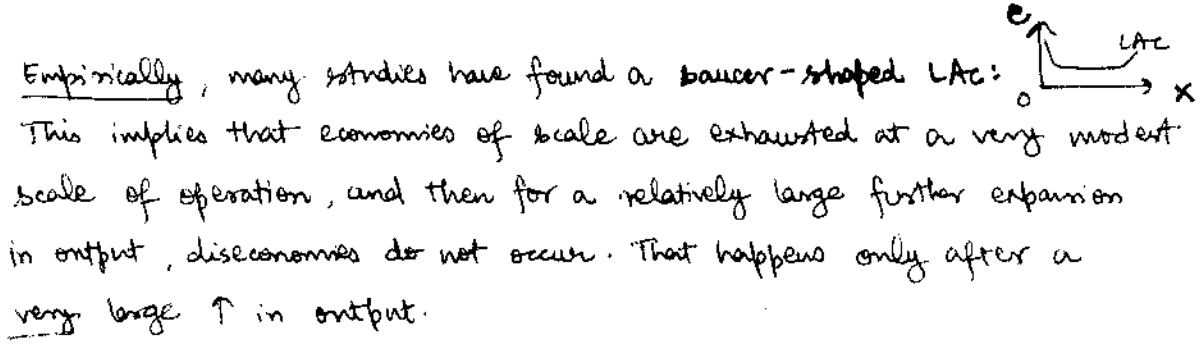 Empirically, many studies have found a saucer-shaped LAC:
C LAC O X
This implies that economies of scale are exhausted at a very modest
scale of operation, and then for a relatively large further expansion
in output, diseconomies do not occur. That happens only after a
very large ↑ in output.